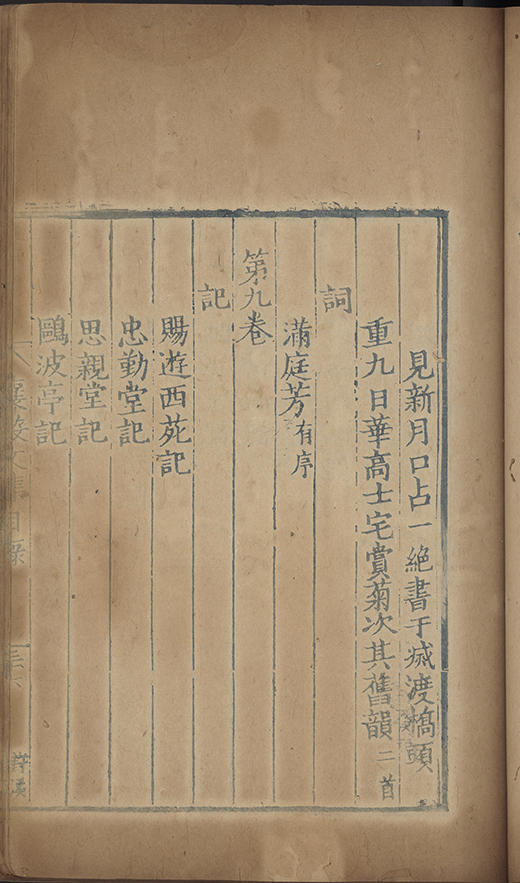 見新月口占一絶書于滅渡橋頭
重九日華高士宅賞菊次其舊韻二首
詞
滿庭芳有序
第九卷
記
賜遊西苑記
忠勤堂記
思親堂記
鷗波亭記
襄毅文集目錄